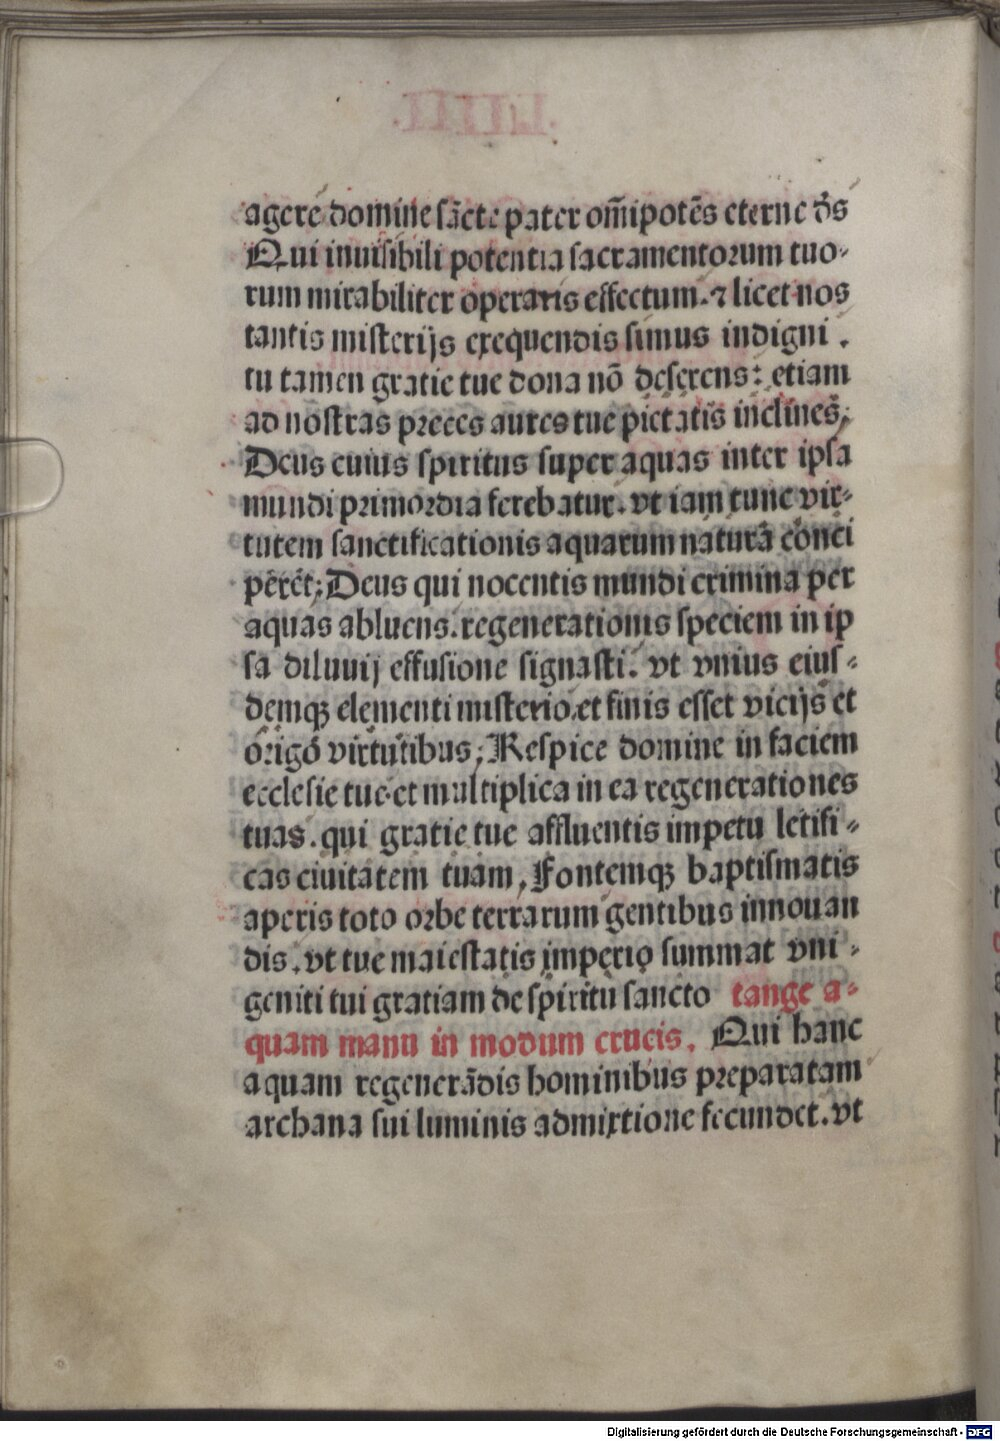 agere domine sācte pater om̄ipotēs eterne d̄s
Qui inuisibili potentia sacramentorum tuo-
rum mirabiliter operaris effectum. ⁊ licet nos
tantis misterijs exequendis simus indigni .
tu tamen gratie tue dona nō deserens: etiam
ad nostras preces aures tue pietatis inclines;
Deus cuius spiritus super aquas inter ipsa
mundi primordia ferebatur. vt iam tunc vir-
tutem sanctificationis aquarum naturā conci
peret; Deus qui nocentis mundi crimina per
aquas abluens. regenerationis speciem in ip
sa diluuij effusione signasti. vt vnius eius-
demqꝫ elementi misterio. et finis esset vicijs et
origo virtutibus; Respice domine in faciem
ecclesie tue. et multiplica in ea regenerationes
tuas. qui gratie tue affluentis impetu letifi-
cas ciuitatem tuam, Fontemqꝫ baptismatis
aperis toto orbe terrarum gentibus innouan
dis. vt tue maiestatis imperio summat vni-
geniti tui gratiam de spiritu sancto tange a-
quam manu in modum crucis. Qui hanc
aquam regenerādis hominibus preparatam
archana sui luminis admixtione fecundet. vt
Digitalisierung gefördert durch die Deutsche Forschungsgemeinschaft - DFG